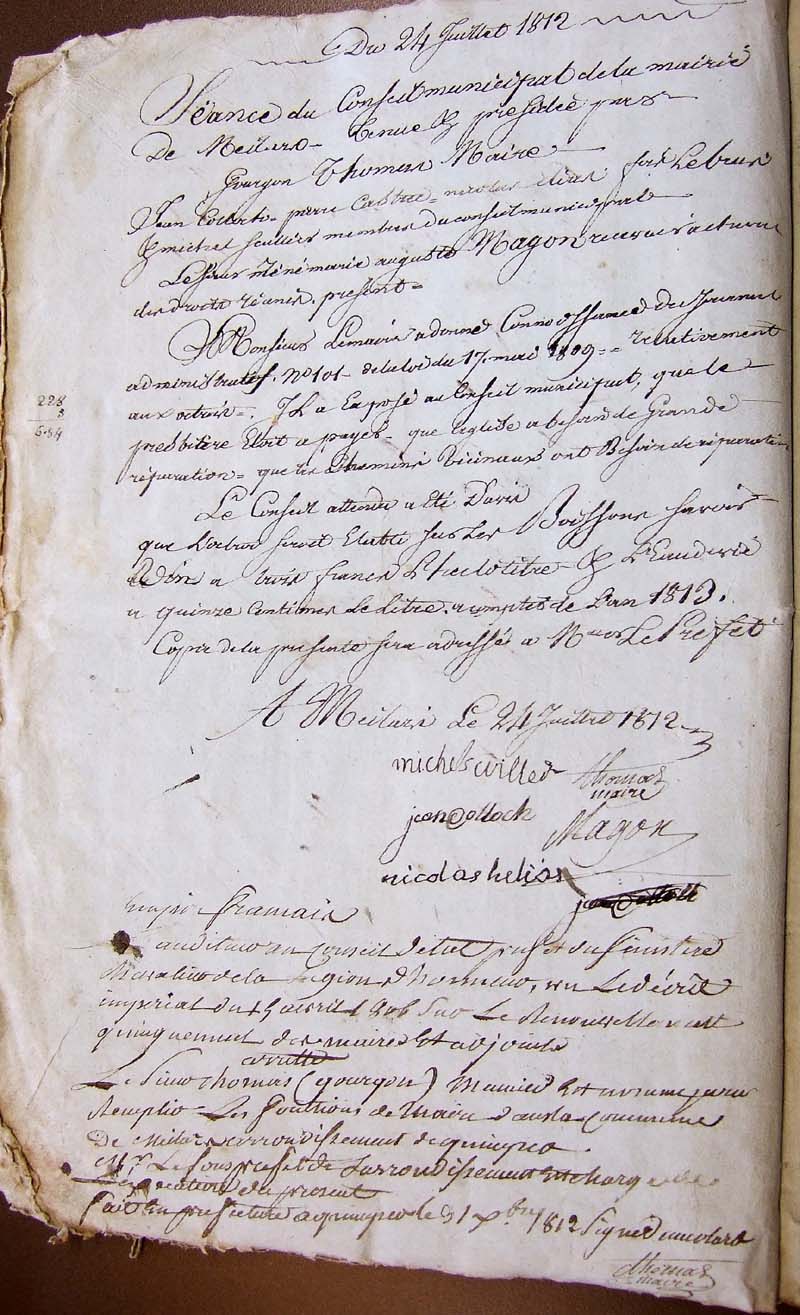 Du 24 Juillet 1812
Séance du Conseil municipal de la mairie
De Meilars - tenue & présidée par
Gourgon Thomas Maire
Jean Collorh - pierre Castrec - nicolas elias
& michel scullier membres du conseil municipal
Le sieur rénémarie auguste Magon receveur
des droits réunis. présent =
Monsieur Lemaire a donné Connoissance du Journal
administratif. No 101 - de la loi du 17. mai 1809 = relativement
aux octrois =. Il a Exposé au Conseil municipal, que le
presbitère Etoit a payer - que l'église a besoin de Grande
réparation = que les Cheminé Vicinaux ont Besoin de réparation
228
3
6.84
Le Conseil attendu a été D'avis
que L'octroi seroit Etablie sur Les Boissons savoir
Le Vin a trois francs L'hectolitre - & L'Eaudevie
a quinze Centimes Le Litre. a compter de L'an 1813.
Copie de la présente sera adressé a M Le Préfet
A Meilars Le 24 Juillet 1812
michel scullier thomas
maire
jean Colloch Magon
nicolas helias
jean Colloch
Empire francais
auditeur au Conseil d'etat préfet du finistere
de la Legion d'honneur, vu Le décret
imperial du 15 avril 1806 Sur Le Renouvellement
quinquennal des maires Et adjoints
arrette
Le Sieur thomas (gourgon) Est nommé pour
Remplir Les fonctions de maire dans la Commune
de Meilars arrondissement de quimper.
Mr. Le sous prefet de Larrondissement Est Charge de
L'execution du present
fait En prefecture a quimper le 31 xbre 1812 Signé
thomas
maire